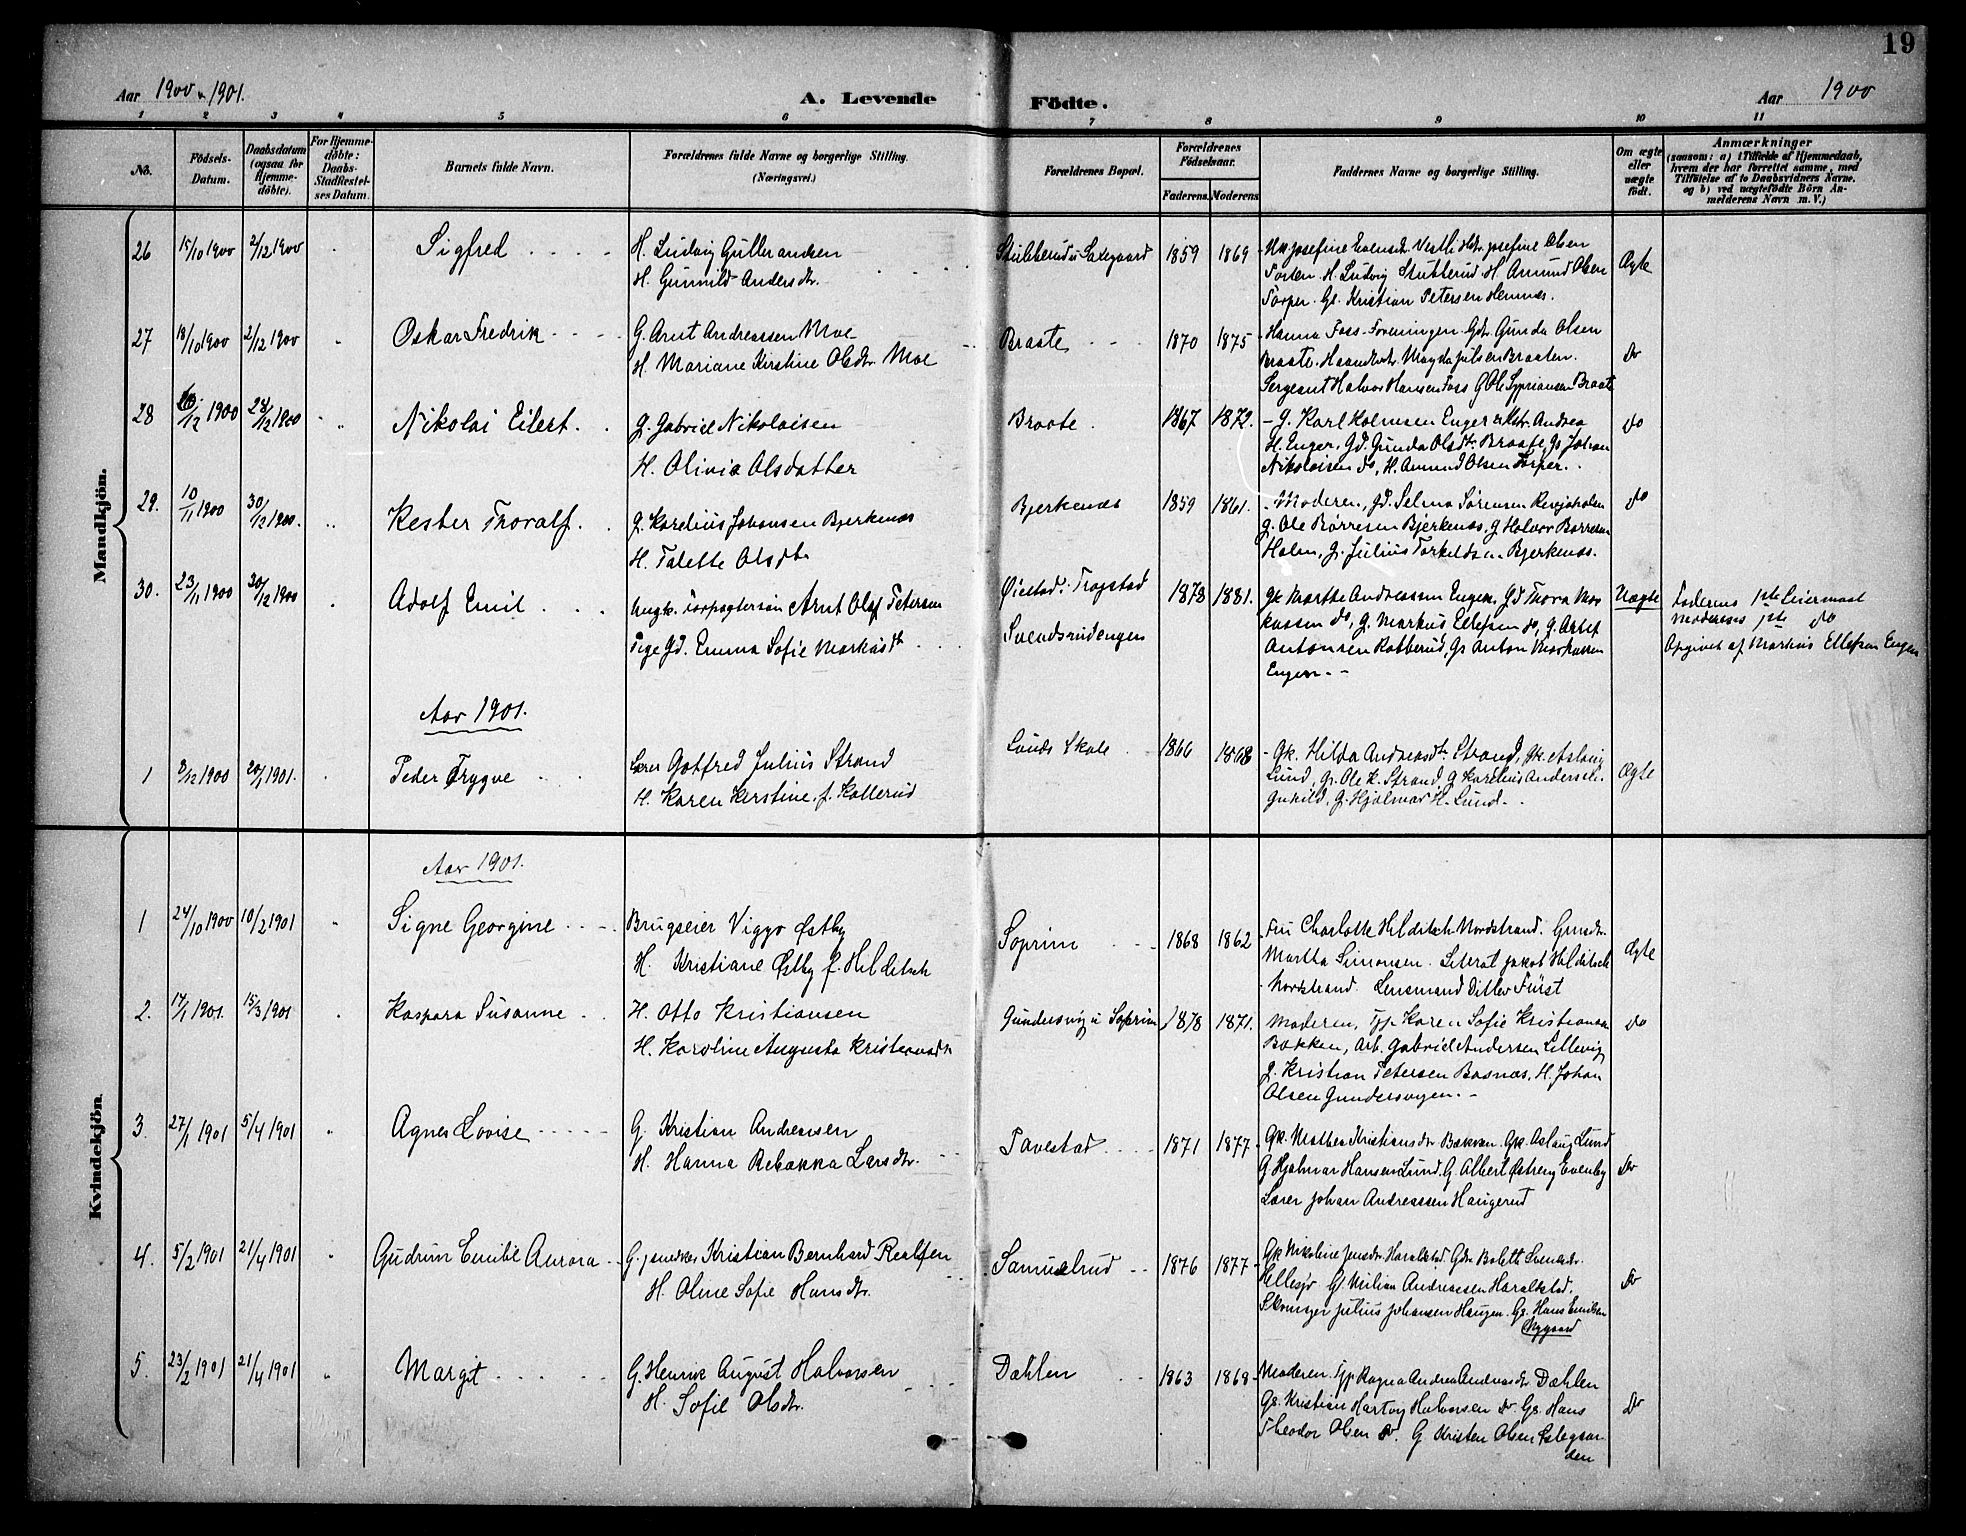 19
Aar 1900 & 1901.
A. Levende Födte.
Aar 1900
1 2 3 4 5 6 7 8 9 10 11
No.
Födsels-Datum.
Daabsdatum (ogsaa for Hjemme-döbte).
For Hjemme-döbte: Daabs-Stadfæstel-ses Datum.
Barnets fulde Navn.
Forældrenes fulde Navne og borgerlige Stilling. (Næringsvei.)
Forældrenes Bopæl.
Forældrenes Födselsaar.
Faderens. Moderens.
Faddernes Navne og borgerlige Stilling.
Om ægte eller uægte födt.
Anmærkninger
(saasom: a) i Tilfælde af Hjemmedaab,
hvem der har forrettet samme, med
Tilföielse af to Daabsvidners Navne.
og b) ved uægtefödte Börn An-
melderens Navn m. V.)
Mandkjön.
26 15/10 1900 2/12 1900 Sigfred
H. Ludvig Gulbrandsen
H. Gunnild Andersdtr.
Stubberud u. Saxegaard 1859 1869
Josefine Olsen
H. Ludvig Stubberud H. Amund Olsen
Torper. Gs. Kristian Petersen Hemnæs.
Ægte
27 18/10 1900 2/12 1900 Oskar Fredrik
G. Arnt Andreassen Moe
H. Mariane Kirstine Olsdtr. Moe
Braate 1870 1875
Hanna Foss Foreningen Gdr. Gunda Olsen
Braate. Magda Julsen Braaten.
Sergeant Halvor Hansen Foss G Ole Syprianson Braate
Do
28 /12 1900 /12 1900 Nikolai Eilert.
G. Gabriel Nikolaisen
H. Olivia Olsdatter
Braate. 1867 1872.
G. Karl Holmsen Enger & Andrea
H. Enger, Gd. Gunda Olsdtr. Braate, Gs Johan
Nikolaisen do, H. Amund Olsen Torper.
do
29. 10/11 1900 30/12 1900. Kester Thoralf.
G. Karelius Johansen Bjerkenæs
H. Talette Olsdtr
Bjerkenæs 1859 1861.
Moderen, Gd. Selma Sørensen
G. Ole Børresen Bjerkenæs, G Halvor Børresen
Holm, G. Julius Torkeldsen Bjerkenæs.
do
30. 23/11 1900 30/12 1900 Adolf Emil
Ungk. Forpagtersøn Arnt Olaf Petersen
Pige Gd. Emma Sofie Markusdtr
Øiestad i Trøgstad
Svendsrudengen
1878 1881.
Gk Marthe Andreassen Engen, Gd Thora Mar
kussen do, G. Markus Ellefsen do, G.
Antonsen Robberud, Gs Anton Markussen
Engen.
Uægte
Faderens 1ste Leiermaal
Moderens 1ste do
Opgivet af Markus Ellefsen Engen
Aar 1901.
1 2/12 1900 20/1 1901. Peder Trygve
Lærer Gotfred Julius Strand
H. Karen Kirstine, f. Kollerud
Lunds Skole 1866 1868
Gk. Hilda Andreasdtr Strand, Gk. Aslaug
Lund, Gs. Ole K. Strand, G Karelius Andersen
G. Hjalmar H. Lund.
Ægte
Kvindekjön.
Aar 1901.
1 24/10 1900 10/2 1901 Signe Georgine
Brugseier Viggo Østby
H. Kristiane Østby f. Hilditsch
Soprim 1868 1862
Fru Charlotte Hilditsch Nordstrand.
Martha Simonsen. Literat Jakob Hilditsch
Nordstrand. Lensmand Ditlev Fürst
Ægte
2. 17/1 1901. 15/3 1901 Kaspara Susanne
H. Otto Kristiansen
H. Karoline Augusta Kristiansdtr
Gundersvig u Soprim 1878 1871.
Moderen, Karen Sofie Kristiansen
Bakken, Arb. Gabriel Andersen Lillevig
G. Kristian Petersen Basnæs, H. Johan
Olsen Gundersvigen.
do
3. 27/1 1901 5/4 1901 Agnes Lovise
G. Kristian Andreasen
H. Hanna Rebækka Larsdtr.
Tavestad 1871 1877
Gk. Mathea Kristiansdtr Bækken. Gk. Aslaug Lund
G Hjalmar Hansen Lund. G Albert Østreng Evenby
Lærer Johan Andreassen Haugerud
Do
4. 5/2 1901 21/4 1901 Gudrun Emilie Aurora
G. Snedker Kristian Bernhard Realfsen
H. Oline Sofie Hansdtr.
Samuelrud 1876 1877
Gk Nikoline Jensdtr Haralstad Gdr Bolette Svensdtr.
Hellesjø G. Milian Andreassen Haralstad.
Skomager Julius Johansen Haugen. Gs. Hans Emilsen
Nygaard
Do
5. 23/2 1901 21/4 1901 Margit
G. Henrik August Halvorsen
H. Sofie Olsdtr.
Dæhlen 1863 1868
Moderen. Ragna Andrea Andreasdtr Dæhlen
Gs. Kristian Hartvig Halvorsen Do. Gs. Hans
Theodor Olsen Do. G Kristen Olsen
den
Do